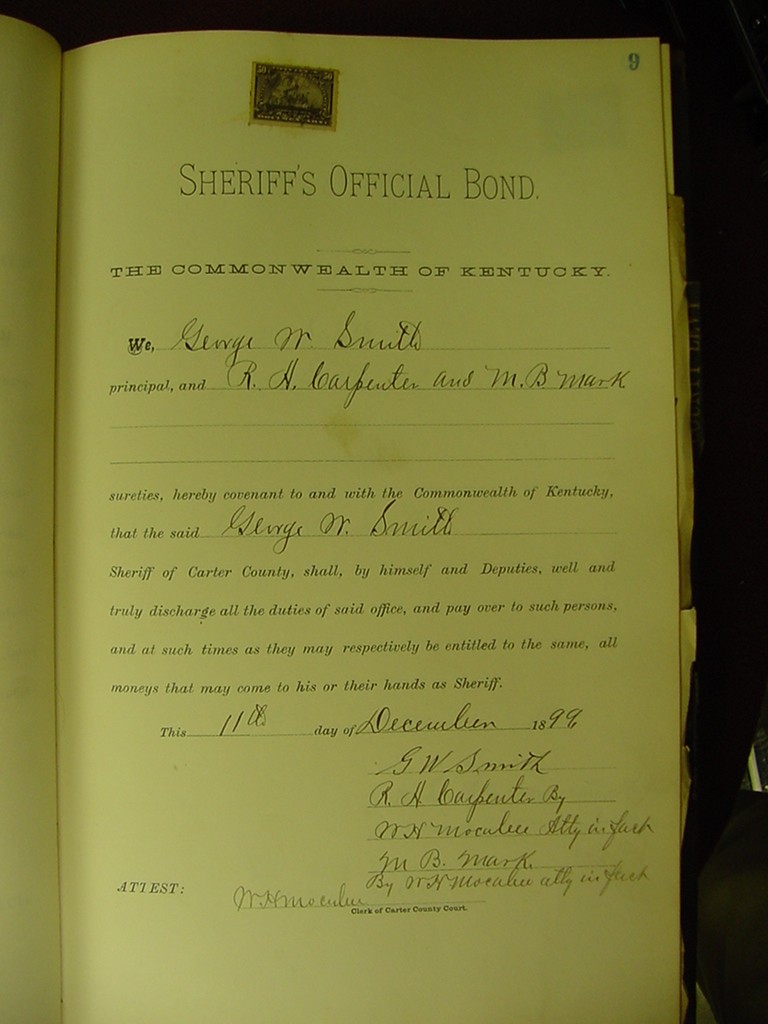 9
50 50
SHERIFF'S OFFICIAL BOND.
THE COMMONWEALTH OF KENTUCKY.
We, George W Smith
principal, and R. H. Carpenter and M. B Mark
sureties, hereby covenant to and with the Commonwealth of Kentucky,
that the said George W. Smith
Sheriff of Carter County, shall, by himself and Deputies, well and
truly discharge all the duties of said office, and pay over to such persons,
and at such times as they may respectively be entitled to the same, all
moneys that may come to his or their hands as Sheriff.
This 11th day of December 1899
G W Smith
R. H Carpenter By
W H Mocabee Atty in fact
M B. Mark
By W H Mocabee atty in fact
ATTEST: W H Mocabee
Clerk of Carter County Court.